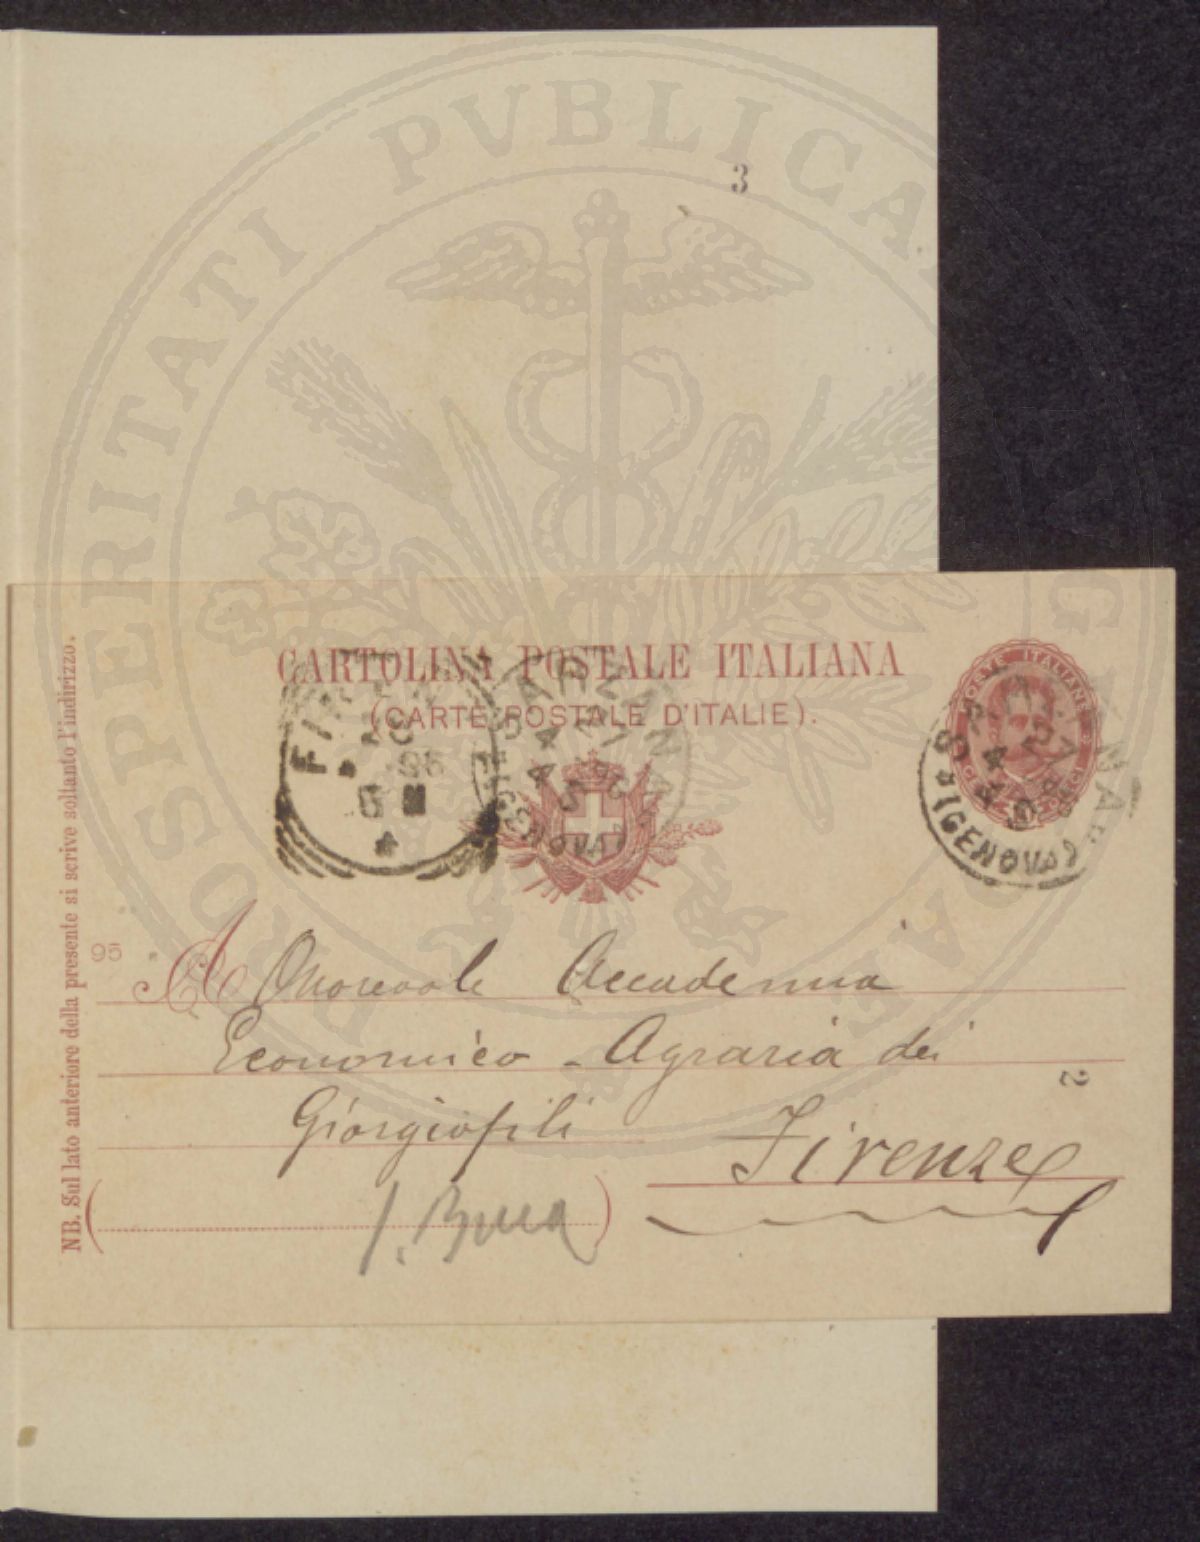 PROSPERITATI PVBLICAE
3
CARTOLINA POSTALE ITALIANA
(CARTE POSTALE D'ITALIE).
POSTE ITALIANE
SARZANA
(GENOVA)
SARZANA
(GENOVA)
95
NB. Sul lato anteriore della presente si scrive soltanto l'indirizzo.
A Onorevole Accademia
Economico - Agraria dei
Giorgiofili
Firenze
2